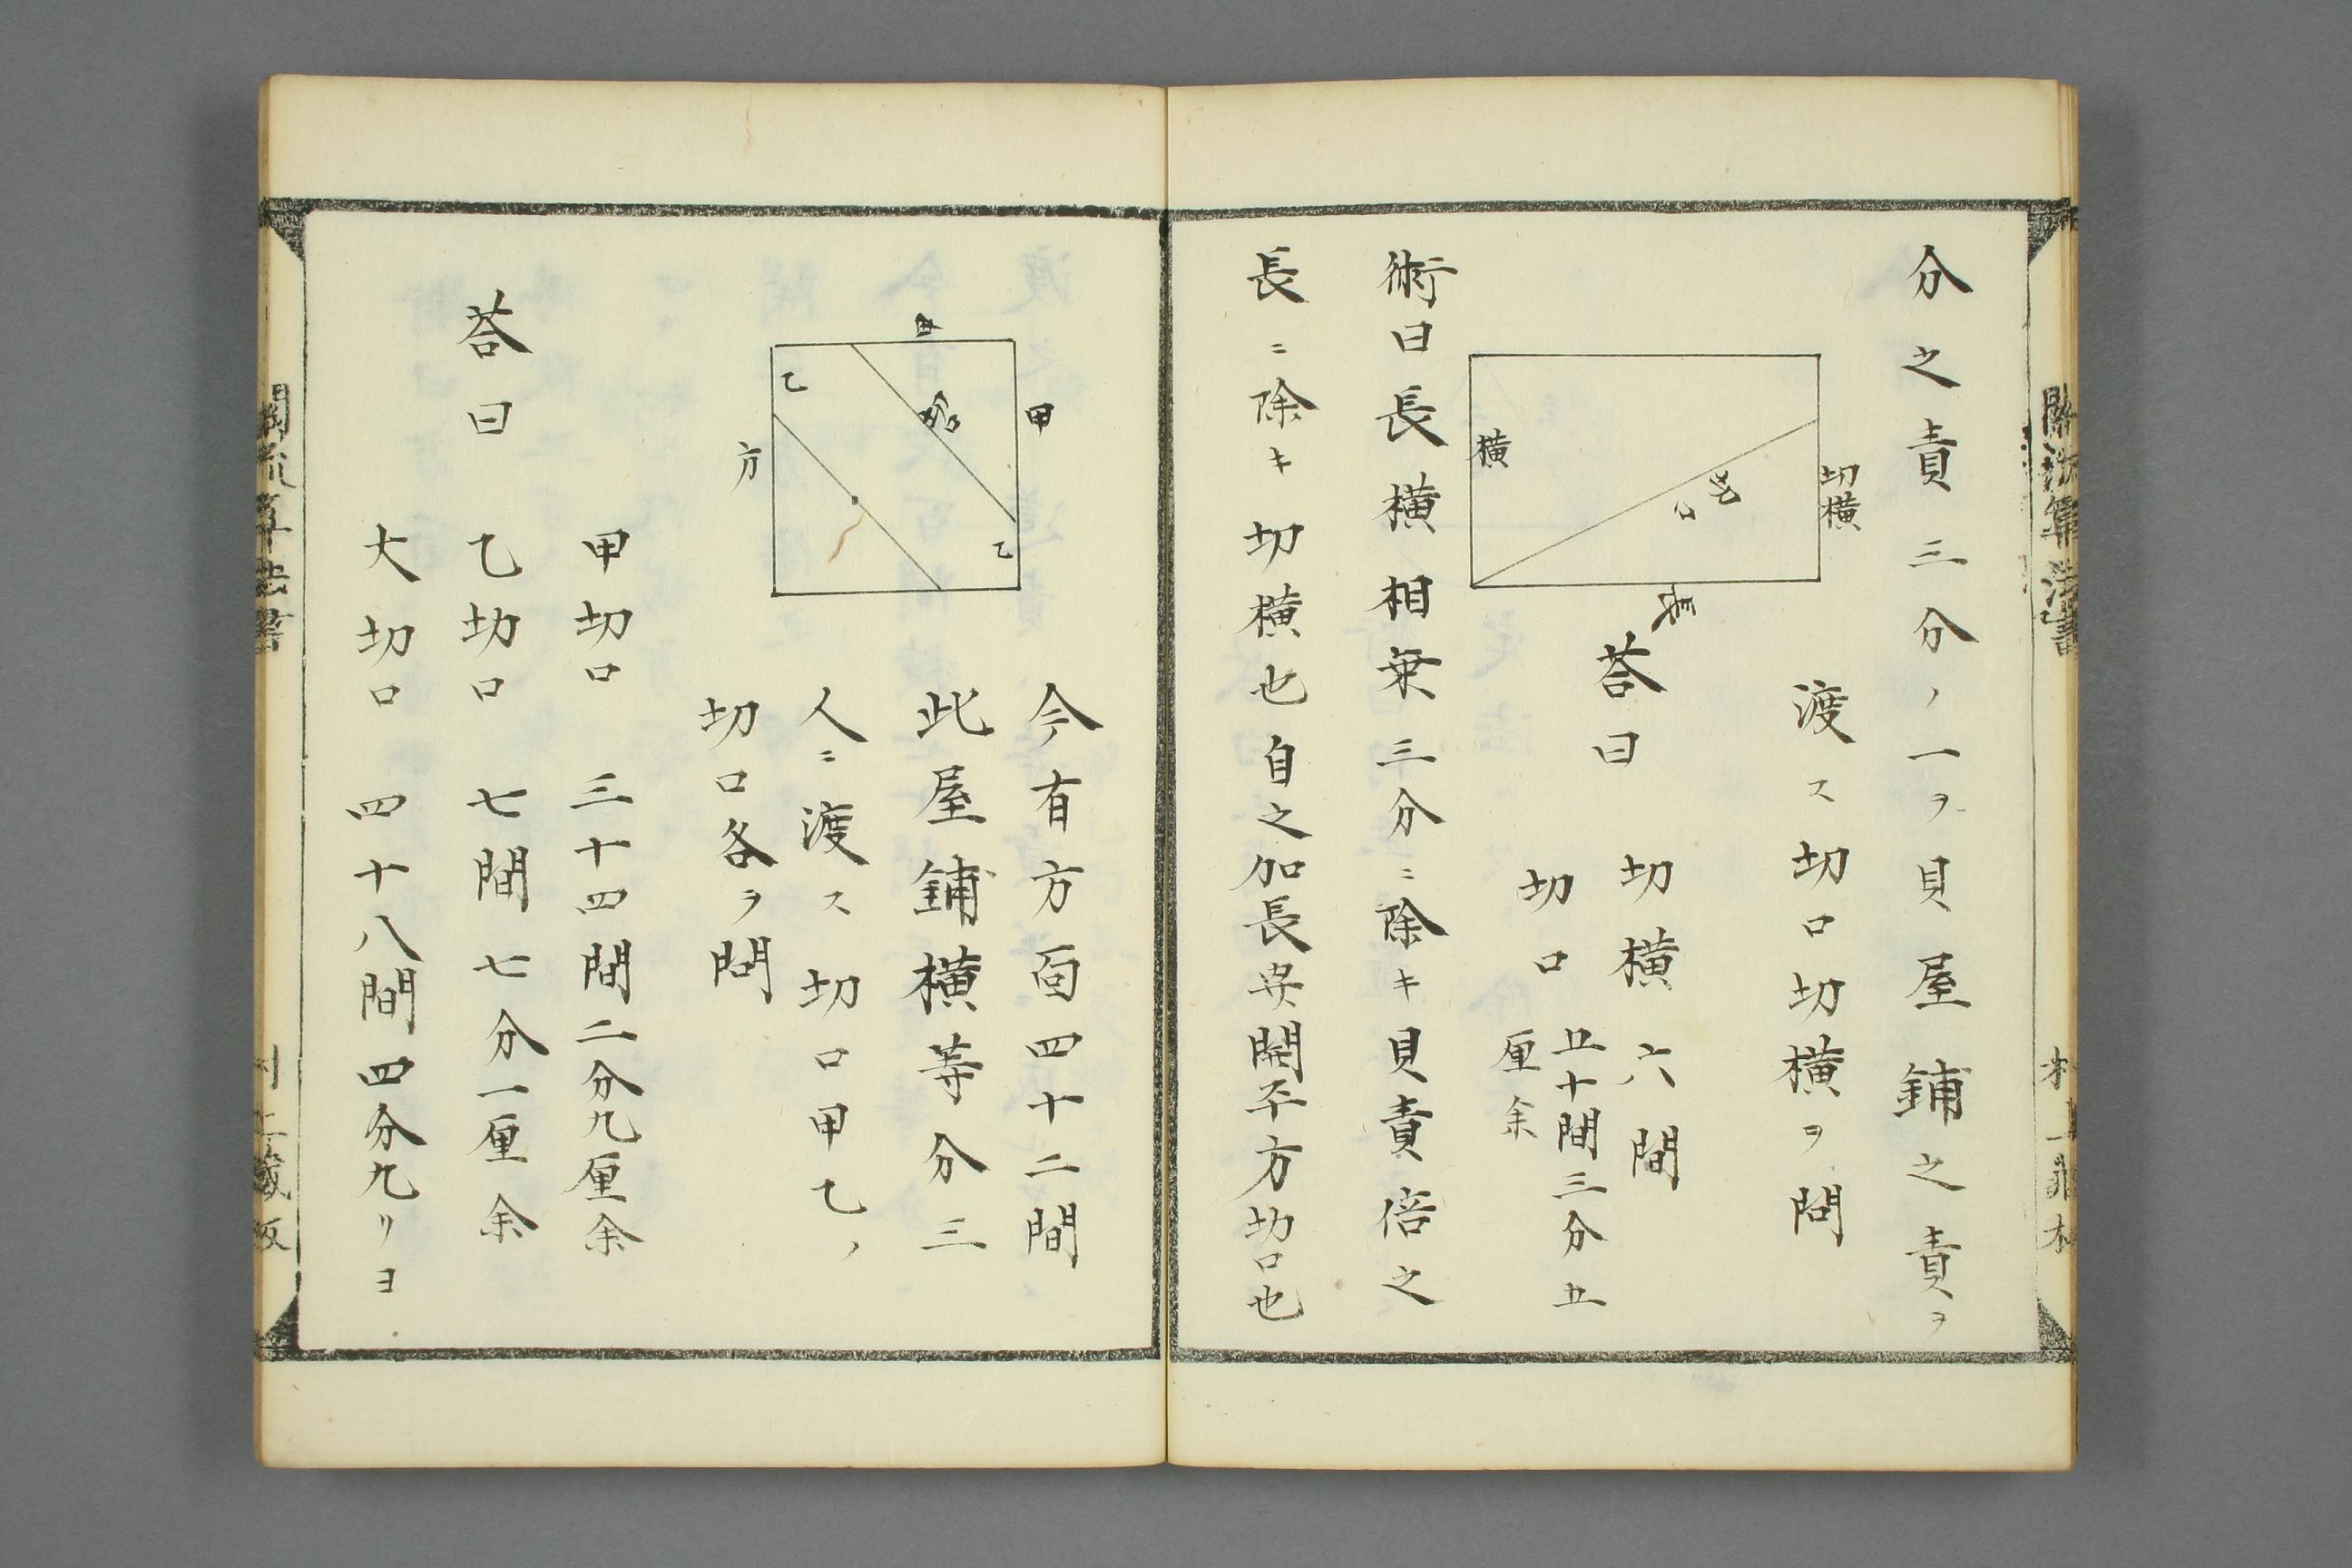 分之責三分ノ一ヲ貝屋鋪之責ヲ
渡ス切口切横ヲ問
切横
切口
横
長
荅曰
切横 六間
切口 五十間三分五
厘余
術曰長横相乗三分ニ除キ貝責倍之
長ニ除キ切横也自之加長巾開平方切口也
今有方面四十二間
此屋鋪横等分三
人ニ渡ス切口甲乙ノ
切口各ヲ問
甲
甲
乙
切口
乙
方
荅曰
甲切口 三十四間二分九厘余
乙切口 七間七分一厘余
大切口 四十八間四分九リヨ
關流算法書